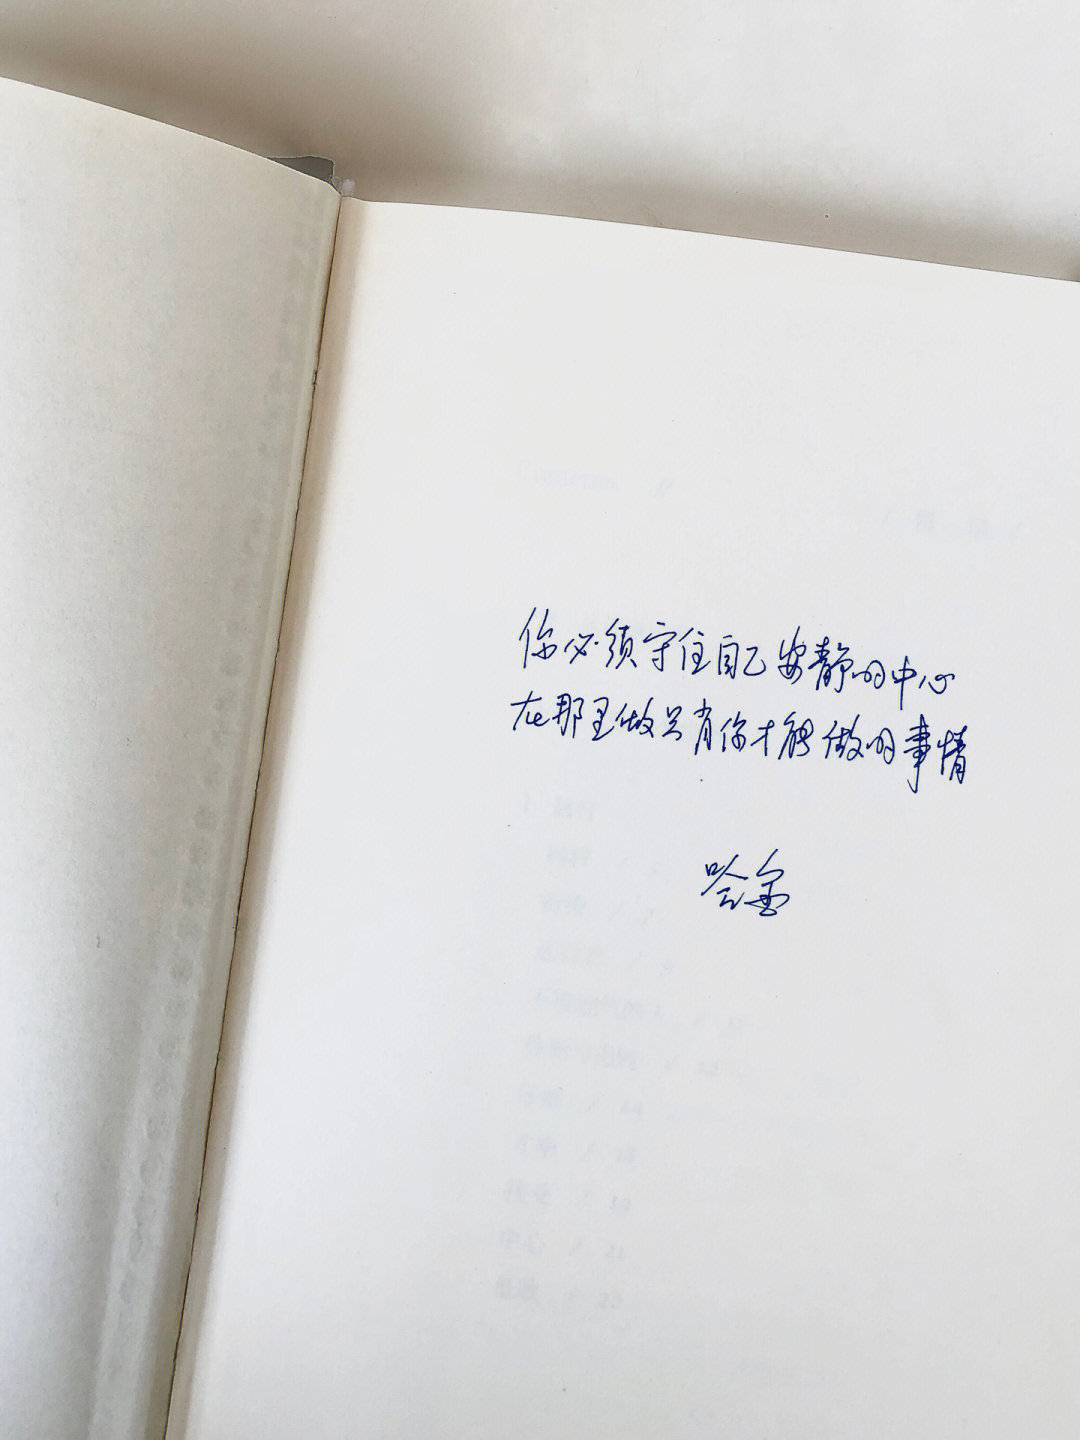 你必须守住自己安静的中心
在那里做只有你才能做的事情
哈金